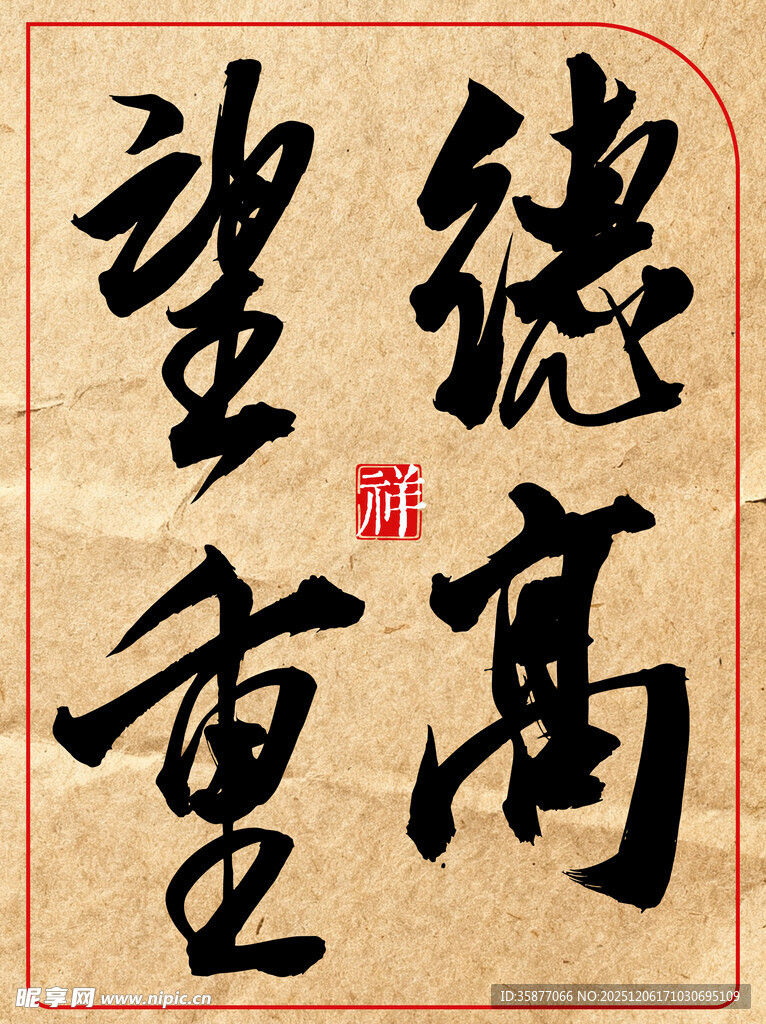 德高
望重
祥
昵享网 www.nipic.cn
ID:35877066 NO:20251206171030695109